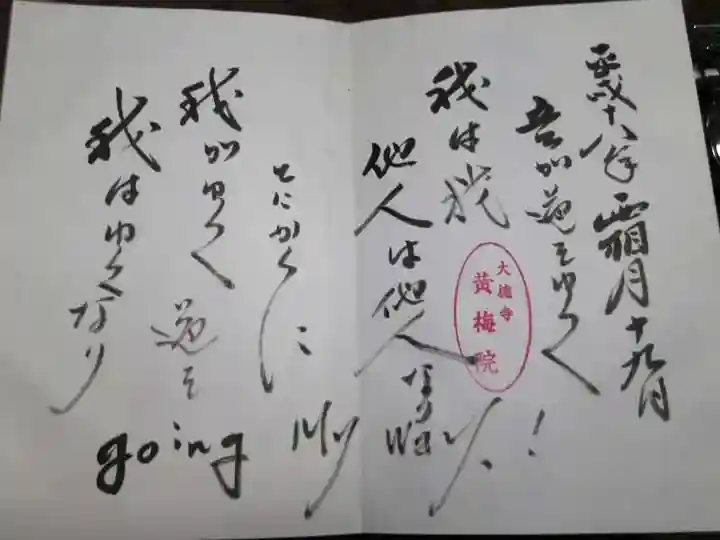 平成十八年霜月十九日
吾が道をゆく
我は我
他人は他人なり
とにかくに
我がゆく道を
我はゆくなり
going my way!
大徳寺
黄梅院